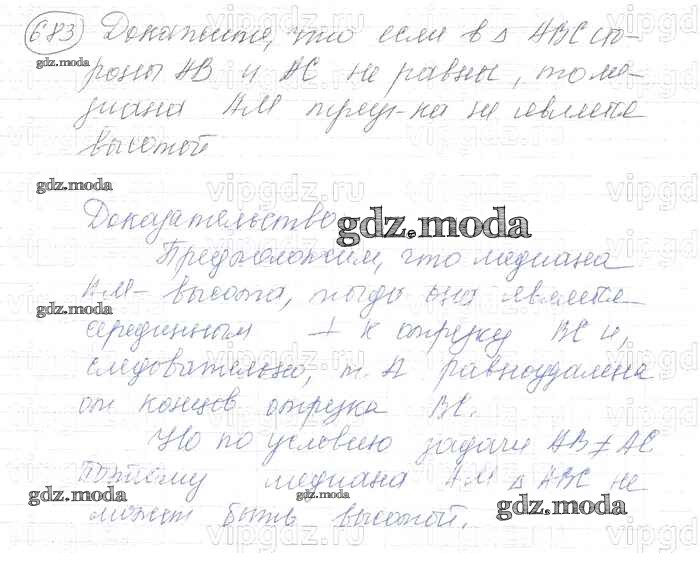 683 Докажите, что если в △ ABC сто-
роны AB и AC не равны, то ме-
диана AM треуг-ка не является
высотой
Доказательство
Предположим, что медиана
AM - высота, тогда она является
серединным ⊥ к отрезку BC и,
следовательно, т. A равноудалена
от концов отрезка BC.
Но по условию задачи AB ≠ AC
Поэтому медиана AM △ ABC не
может быть высотой.
gdz.moda
gdz.moda
gdz.moda
gdz.moda
gdz.moda
gdz.moda
gdz.moda
vipgdz.ru